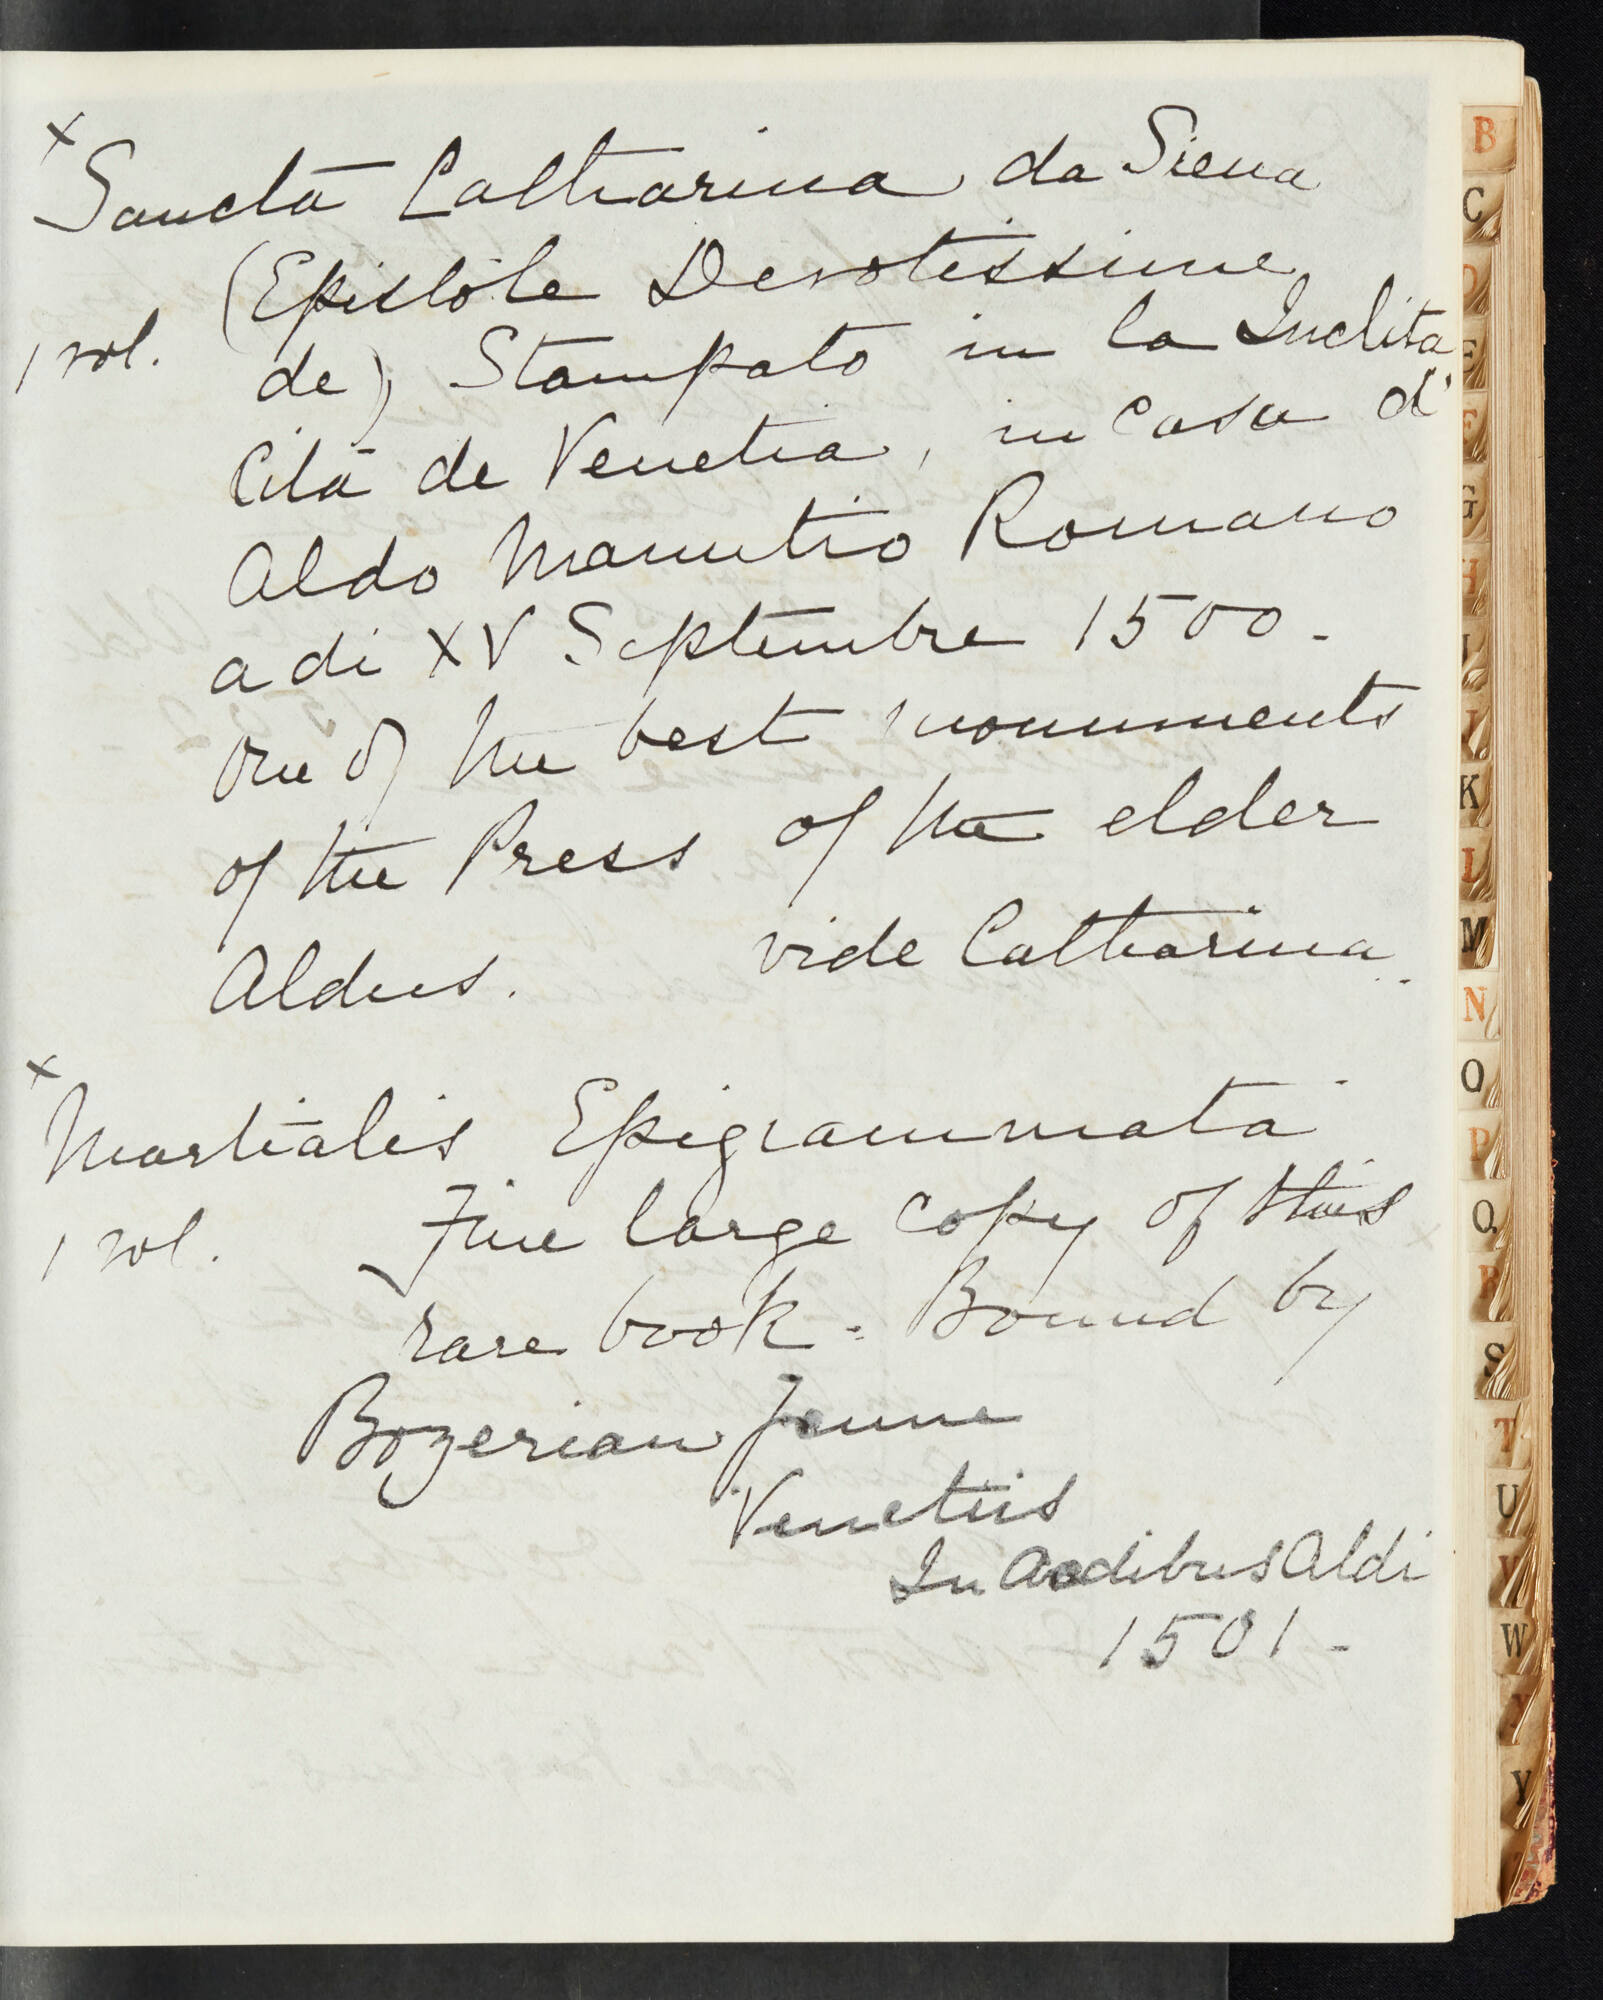 x
Sancta Catharina da Siena
(Epistole Devotissime
1 vol.
de) Stampato in la Inclita
Cita de Venetia, in Casa d'
Aldo Manutio Romano
a di XV Septembre 1500.
One of the best monuments
of the Press of the elder
Aldus. vide Catharina.
x
Martialis Epigrammata
1 vol.
Fine large copy of this
rare book. Bound by
Bozerian Jeune
Venetiis
In Aedibus Aldi
1501-
B
C
D
E
F
G
H
I
J
K
L
M
N
O
P
Q
R
S
T
U
V
W
Y